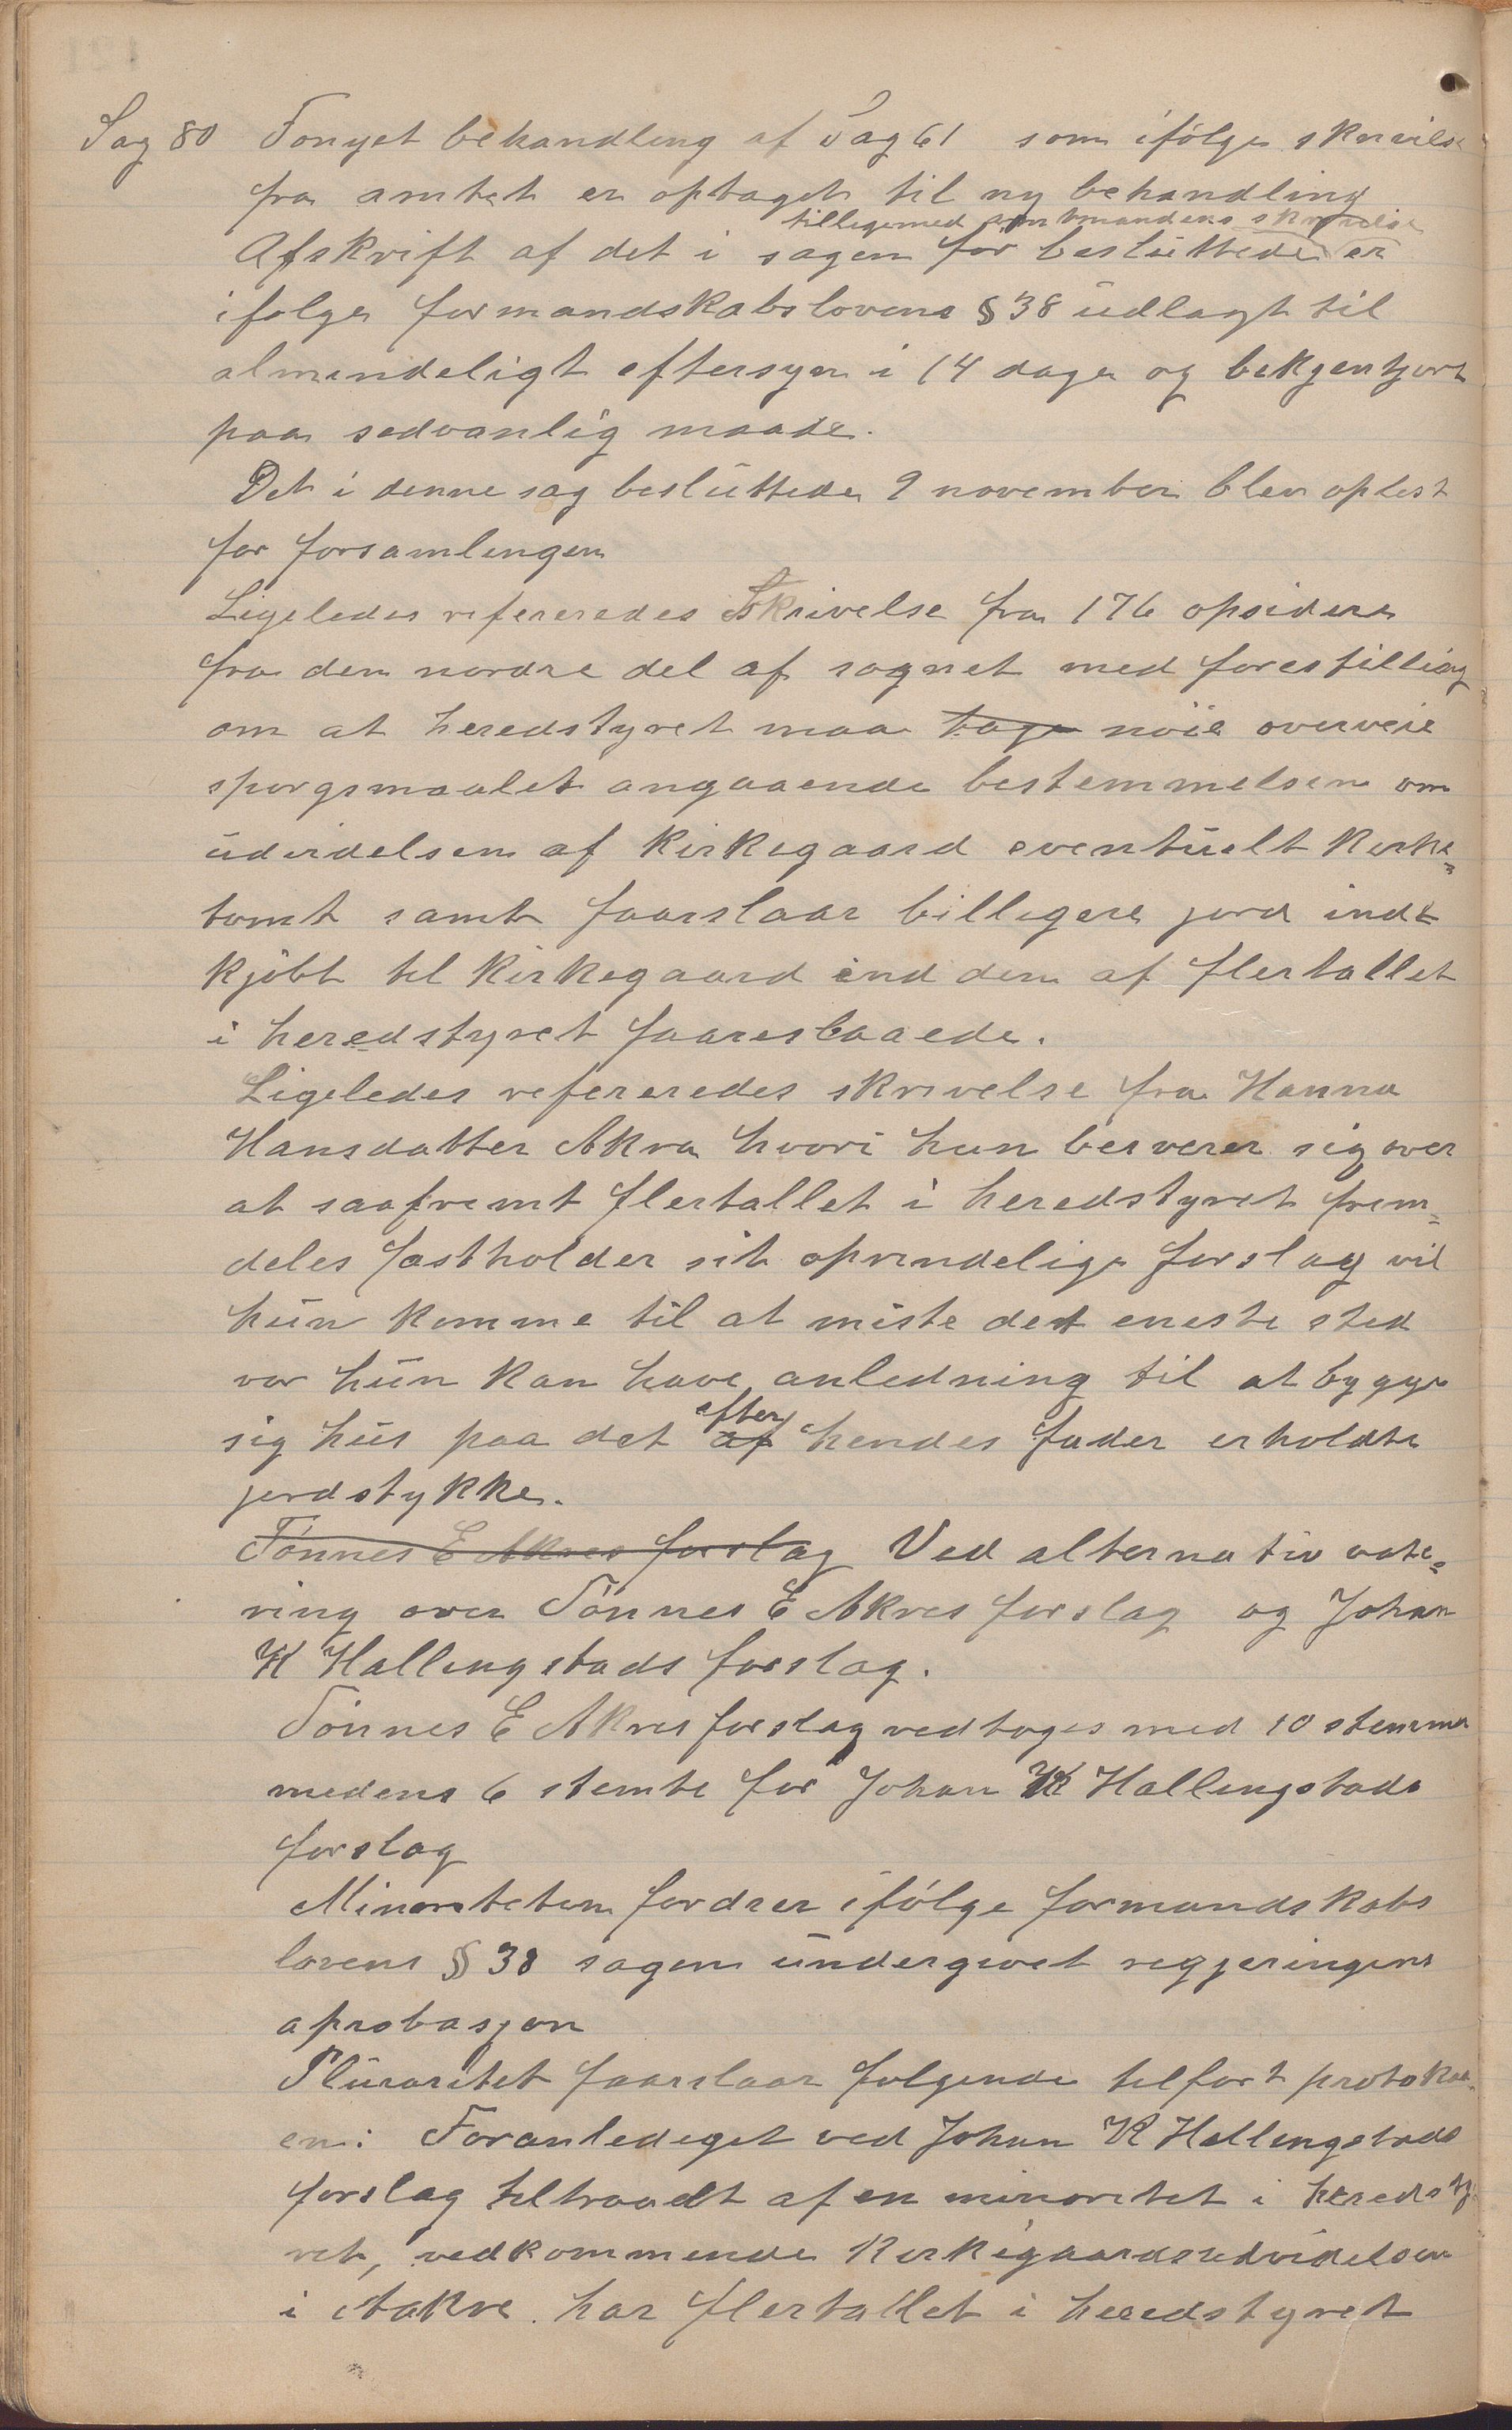 Sag 80 Fonyet behandling af Sag 61 som ifölge skrivelse
fra amtet er optaget til ny behandling
tillegemed amtmandens skrivelse
Afskrift af det i sagen för besluttede er
ifølge formandskabslovens § 38 udlagt til
almindeligt eftersyn i 14 dage og bekjentgjort
paa sedvanlig maade.
Det i denne sag besluttede 9 november blev oplest
for forsamlingen
Ligeledes refereredes Skrivelse fra 176 opsidere
fra den nordre del af sognet med forestilling
om at heredstyret maa tage nöie overveie
spørgsmaalet angaaende bestemmelsen om
udvidelsen af Kirkegaard eventuelt Kirke=
tomt samt faarslaar billigere jord ind=
kjöbt til Kirkegaard end den af flertallet
i heredstyret faareslaaede.
Ligeledes refereredes skrivelse fra Hanna
Hansdatter Akra hvori hun besverer sig over
at saafremt flertallet i heredstyret frem=
deles fastholder sit oprindelige forslag vil
hun komme til at miste det eneste sted
vor hun kan have anledning til at bygge
sig hus paa det af efter hendes fader erholdte
jordstykke.
Tönnes E Akres forslag Ved alternativ vote=
ring over Tönnes E Akres forslag og Johan
K Hallingstads forslag.
Tönnes E Akres forslag vedtoges med 10 stemmer
medens 6 stemte for Johan K Hallingstads
forslag
Minoriteten fordrer ifölge formandskabs
lovens § 38 sagen undergivet regjeringens
aprobasjon
Pluraritet faarslaar følgende tilført protokoll
en: Foranlediget ved Johan K Hallingstads
forslag tiltraadt af en minoritet i heredsty
ret, vedkommende Kirkegaardsudvidelsen
i Aakre har flertallet i heredstyret